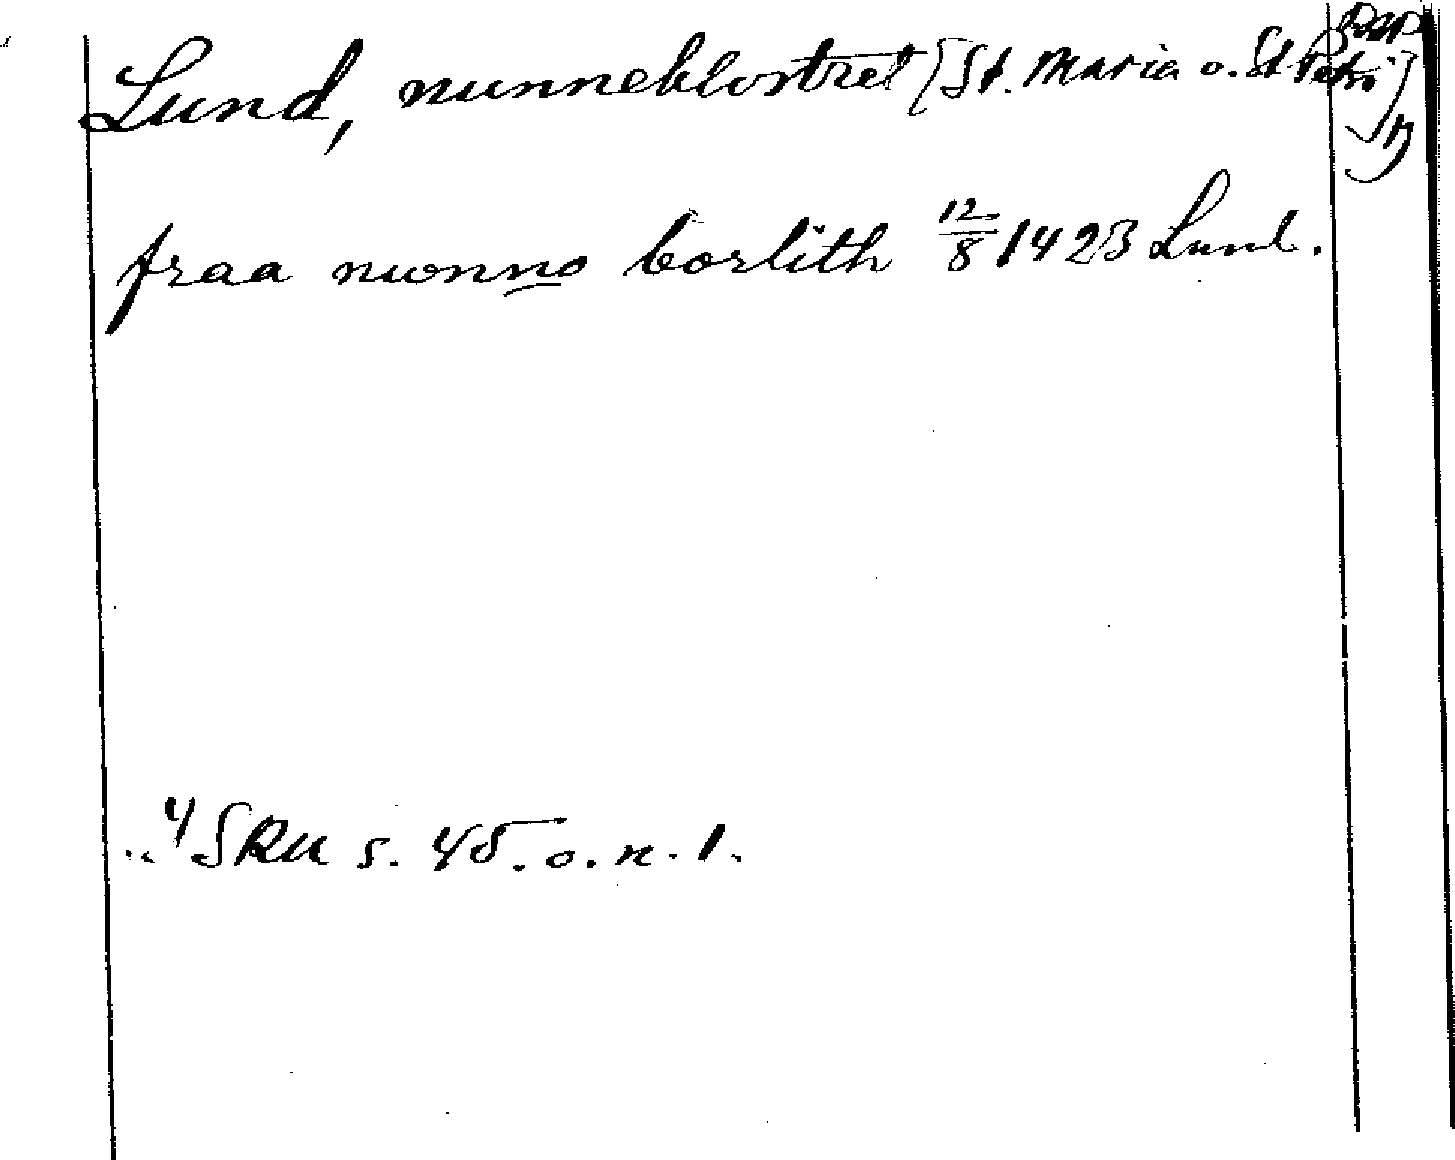 Lund, nunneklostret [St. Maria o. St Petri]
fraa nwnno borlith 12/8 1423 Lund.
SRU s. 45. o. n. 1.